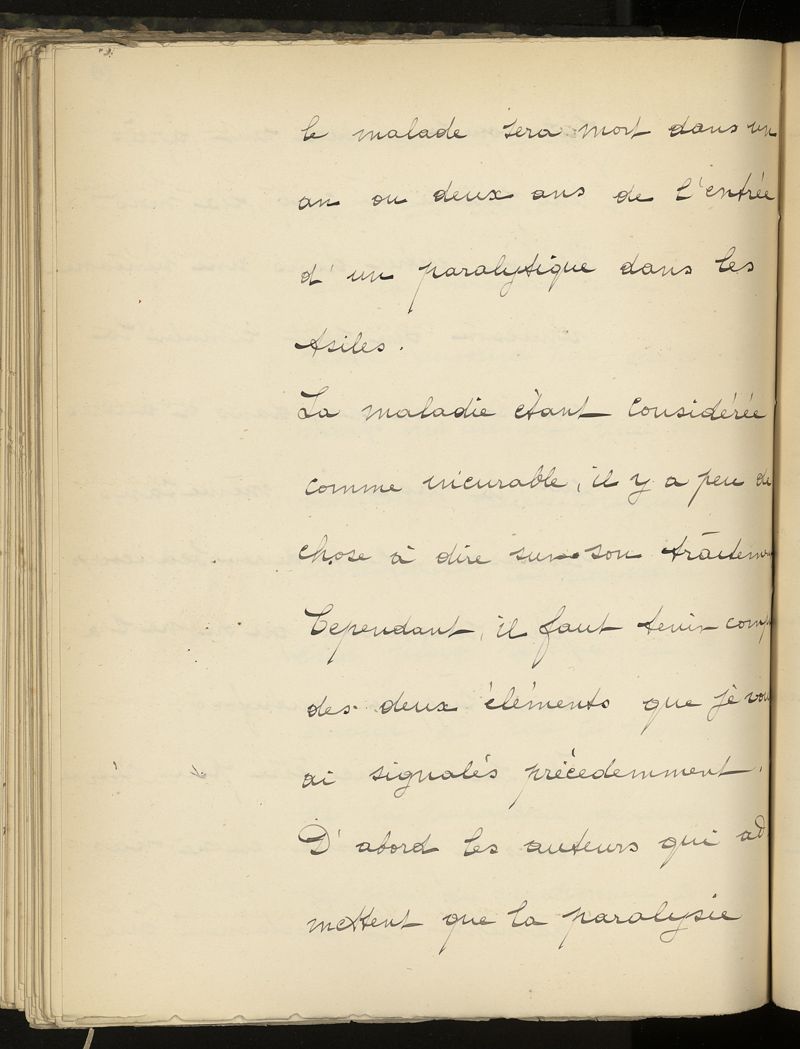 le malade sera mort dans un
an ou deux ans de l'entrée
d'un paralytique dans les
Asiles.
La maladie étant considérée
comme incurable, il y a peu de
chose à dire sur son traitem
Cependant, il faut tenir comp
des deux éléments que je vou
ai signalés précédemment.
D'abord les auteurs qui ad
mettent que la paralysie